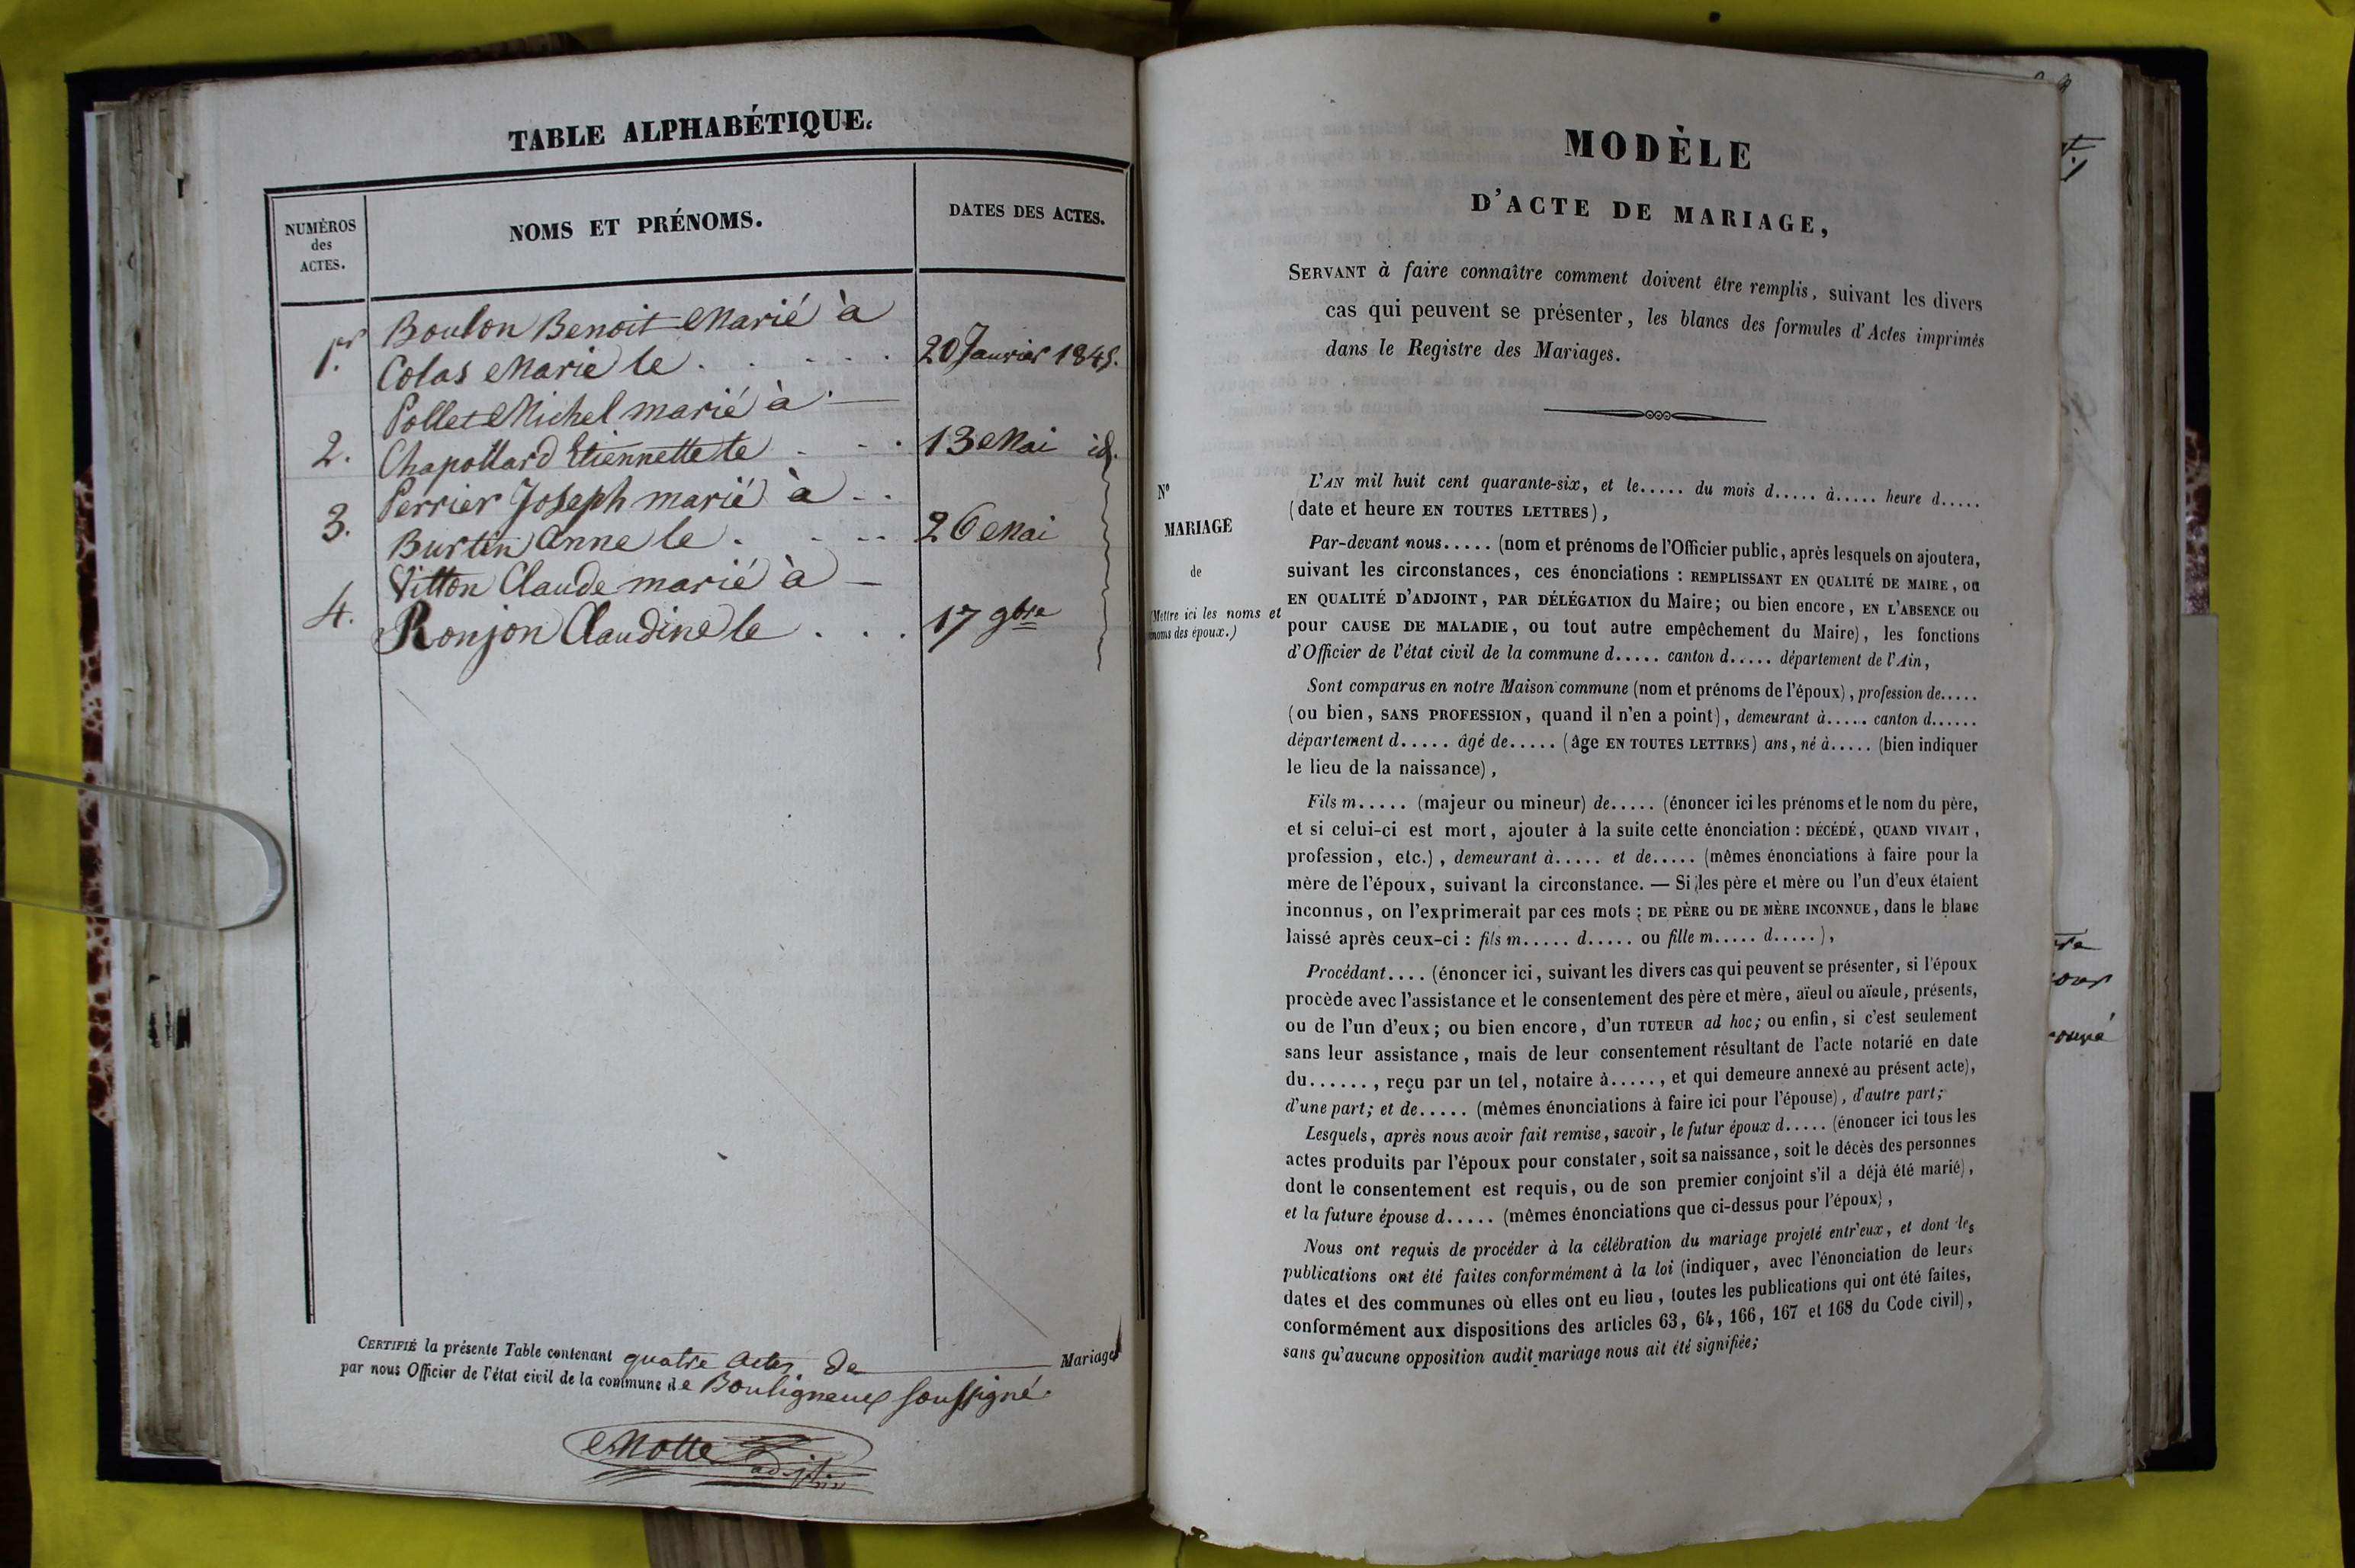 TABLE ALPHABÉTIQUE.
NUMÉROS
des
ACTES.
NOMS ET PRÉNOMS.
DATES DES ACTES.
1er. Boulon Benoit Marié à
Colas Marie le . . . . . 20 Janvier 1845.
Pollet Michel marié à —
2. Chapottard Etiennette le - - . 13 Mai id.
Perrier Joseph marié à - .
3. Burtin Anne le . - -- 26 Mai
Vitton Claude marié à —
4. Ronjon Claudine le . . . 17 9bre
CERTIFIÉ la présente Table contenant quatre actes de Mariages
par nous Officier de l'état civil de la commune de Bouligneux soussigné.
Motte
adjoint
MODÈLE
D'ACTE DE MARIAGE,
SERVANT à faire connaître comment doivent être remplis, suivant les divers
cas qui peuvent se présenter, les blancs des formules d'Actes imprimés
dans le Registre des Mariages.
N°
MARIAGE
de
(Mettre ici les noms et
noms des époux.)
L'AN mil huit cent quarante-six, et le..... du mois d..... à..... heure d.....
(date et heure EN TOUTES LETTRES),
Par-devant nous..... (nom et prénoms de l'Officier public, après lesquels on ajoutera,
suivant les circonstances, ces énonciations : REMPLISSANT EN QUALITÉ DE MAIRE, ou
EN QUALITÉ D'ADJOINT, PAR DÉLÉGATION du Maire; ou bien encore, EN L'ABSENCE ou
pour CAUSE DE MALADIE, ou tout autre empêchement du Maire), les fonctions
d'Officier de l'état civil de la commune d..... canton d..... département de l'Ain,
Sont comparus en notre Maison commune (nom et prénoms de l'époux), profession de.....
(ou bien, SANS PROFESSION, quand il n'en a point), demeurant à..... canton d......
département d..... âgé de..... (âge EN TOUTES LETTRES) ans, né à..... (bien indiquer
le lieu de la naissance),
Fils m..... (majeur ou mineur) de..... (énoncer ici les prénoms et le nom du père,
et si celui-ci est mort, ajouter à la suite cette énonciation : DÉCÉDÉ, QUAND VIVAIT,
profession, etc.), demeurant à..... et de..... (mêmes énonciations à faire pour la
mère de l'époux, suivant la circonstance. — Si les père et mère ou l'un d'eux étaient
inconnus, on l'exprimerait par ces mots : DE PÈRE OU DE MÈRE INCONNUE, dans le blanc
laissé après ceux-ci : fils m..... d..... ou fille m..... d.....),
Procédant.... (énoncer ici, suivant les divers cas qui peuvent se présenter, si l'époux
procède avec l'assistance et le consentement des père et mère, aïeul ou aïeule, présents,
ou de l'un d'eux; ou bien encore, d'un TUTEUR ad hoc; ou enfin, si c'est seulement
sans leur assistance, mais de leur consentement résultant de l'acte notarié en date
du......, reçu par un tel, notaire à....., et qui demeure annexé au présent acte),
d'une part; et de..... (mêmes énonciations à faire ici pour l'épouse), d'autre part;
Lesquels, après nous avoir fait remise, savoir, le futur époux d..... (énoncer ici tous les
actes produits par l'époux pour constater, soit sa naissance, soit le décès des personnes
dont le consentement est requis, ou de son premier conjoint s'il a déjà été marié),
et la future épouse d..... (mêmes énonciations que ci-dessus pour l'époux),
Nous ont requis de procéder à la célébration du mariage projeté entr'eux, et dont les
publications ont été faites conformément à la loi (indiquer, avec l'énonciation de leurs
dates et des communes où elles ont eu lieu, toutes les publications qui ont été faites,
conformément aux dispositions des articles 63, 64, 166, 167 et 168 du Code civil),
sans qu'aucune opposition audit mariage nous ait été signifiée;